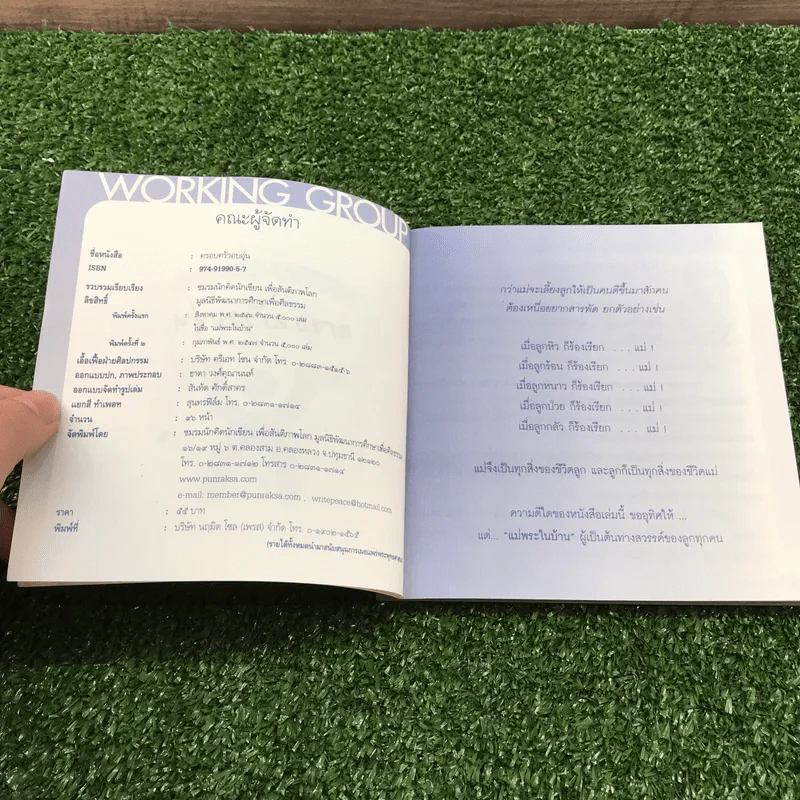 WORKING GROUP
คณะผู้จัดทำ
ชื่อหนังสือ : ครอบครัวอบอุ่น
ISBN : 974-91990-5-7
รวบรวมเรียบเรียง : ชมรมนักคิดนักเขียน เพื่อสันติภาพโลก
ลิขสิทธิ์ มูลนิธิพัฒนาการศึกษาเพื่อศีลธรรม
พิมพ์ครั้งแรก : สิงหาคม พ.ศ. ๒๕๔๖ จำนวน ๕,๐๐๐ เล่ม
ในชื่อ "แม่พระในบ้าน"
พิมพ์ครั้งที่ ๒ : กุมภาพันธ์ พ.ศ. ๒๕๔๗ จำนวน ๕,๐๐๐ เล่ม
เอื้อเฟื้อฝ่ายศิลปกรรม : บริษัท ครีเอท โซน จำกัด โทร. ๐-๒๘๓๓-๑๕๑๕-๖
ออกแบบปก, ภาพประกอบ : ธาดา วงศ์คุณานนท์
ออกแบบจัดทำรูปเล่ม : สันทัด ศักดิ์สาคร
แยกสี ทำเพลท : สุนทรฟิล์ม โทร. ๐-๒๘๓๑-๑๗๑๔
จำนวน : ๙๖ หน้า
จัดพิมพ์โดย : ชมรมนักคิดนักเขียน เพื่อสันติภาพโลก มูลนิธิพัฒนาการศึกษาเพื่อศีลธรรม
๑๖/๑๙ หมู่ ๖ ต.คลองสาม อ.คลองหลวง จ.ปทุมธานี ๑๒๑๒๐
โทร. ๐-๒๘๓๑-๑๗๑๒ โทรสาร ๐-๒๘๓๑-๑๗๑๔
www.punraksa.com
e-mail: member@punraksa.com , writepeace@hotmail.com
ราคา : ๕๕ บาท
พิมพ์ที่ : บริษัท นฤมิต โซล (เพรส) จำกัด โทร. ๐-๑๙๐๒-๑๕๖๕
(รายได้ทั้งหมดนำมาสนับสนุนการเผยแพร่พระพุทธศาสนา)
กว่าแม่จะเลี้ยงลูกให้เป็นคนดีขึ้นมาสักคน
ต้องเหนื่อยยากสารพัด ยกตัวอย่างเช่น
เมื่อลูกหิว ก็ร้องเรียก . . . แม่ !
เมื่อลูกร้อน ก็ร้องเรียก . . . แม่ !
เมื่อลูกหนาว ก็ร้องเรียก . . . แม่ !
เมื่อลูกป่วย ก็ร้องเรียก . . . แม่ !
เมื่อลูกกลัว ก็ร้องเรียก . . . แม่ !
แม่จึงเป็นทุกสิ่งของชีวิตลูก และลูกก็เป็นทุกสิ่งของชีวิตแม่
ความดีใดของหนังสือเล่มนี้ ขออุทิศให้ ...
แด่... "แม่พระในบ้าน" ผู้เป็นต้นทางสวรรค์ของลูกทุกคน